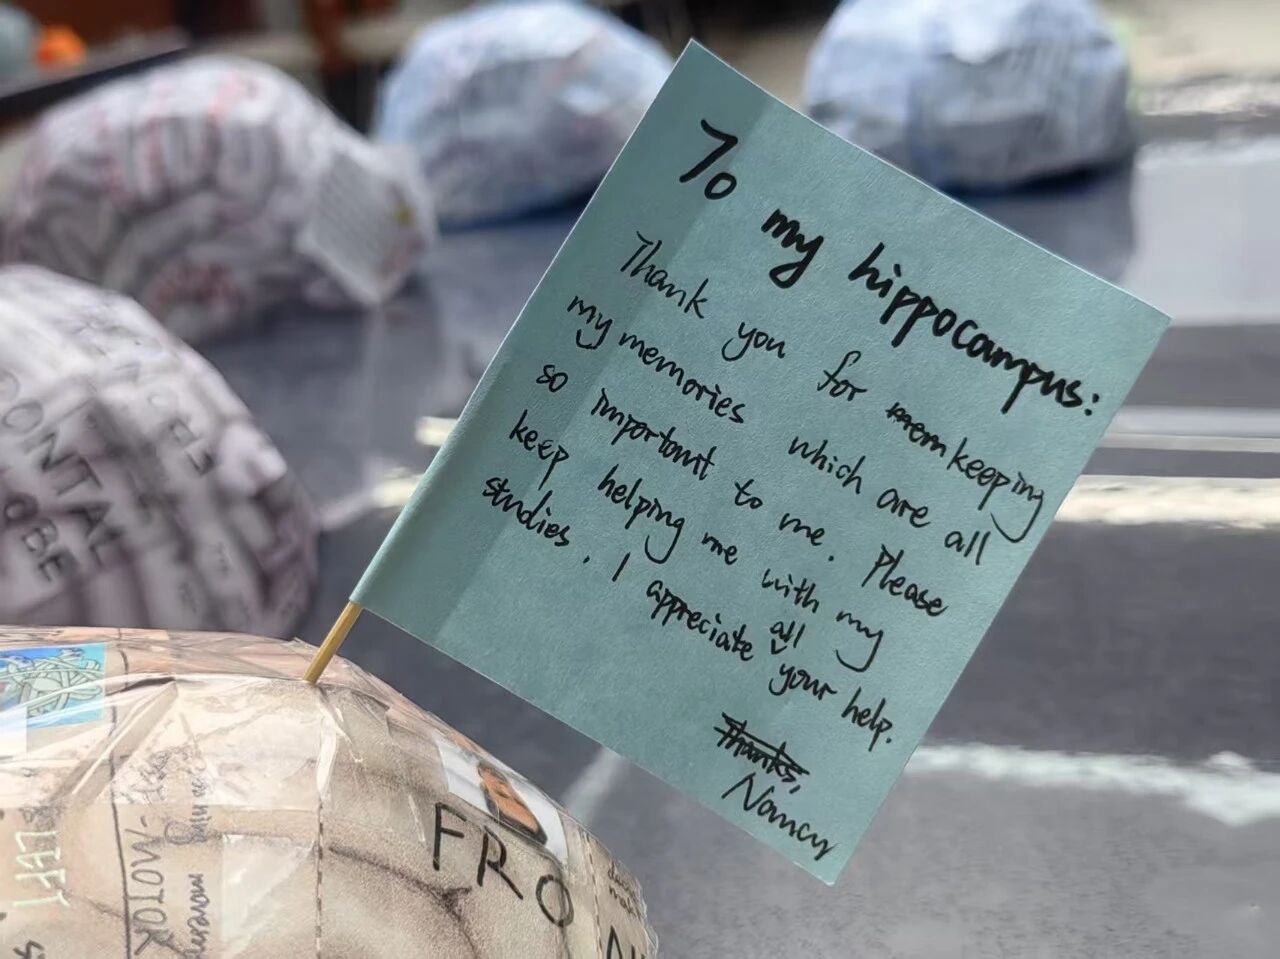 To my hippocampus:
Thank you for keeping
my memories which are all
so important to me. Please
keep helping me with my
studies. I appreciate all your help.
Thanks,
Nancy
FRONTAL
LOBE
FRO
LEFT
MOTOR